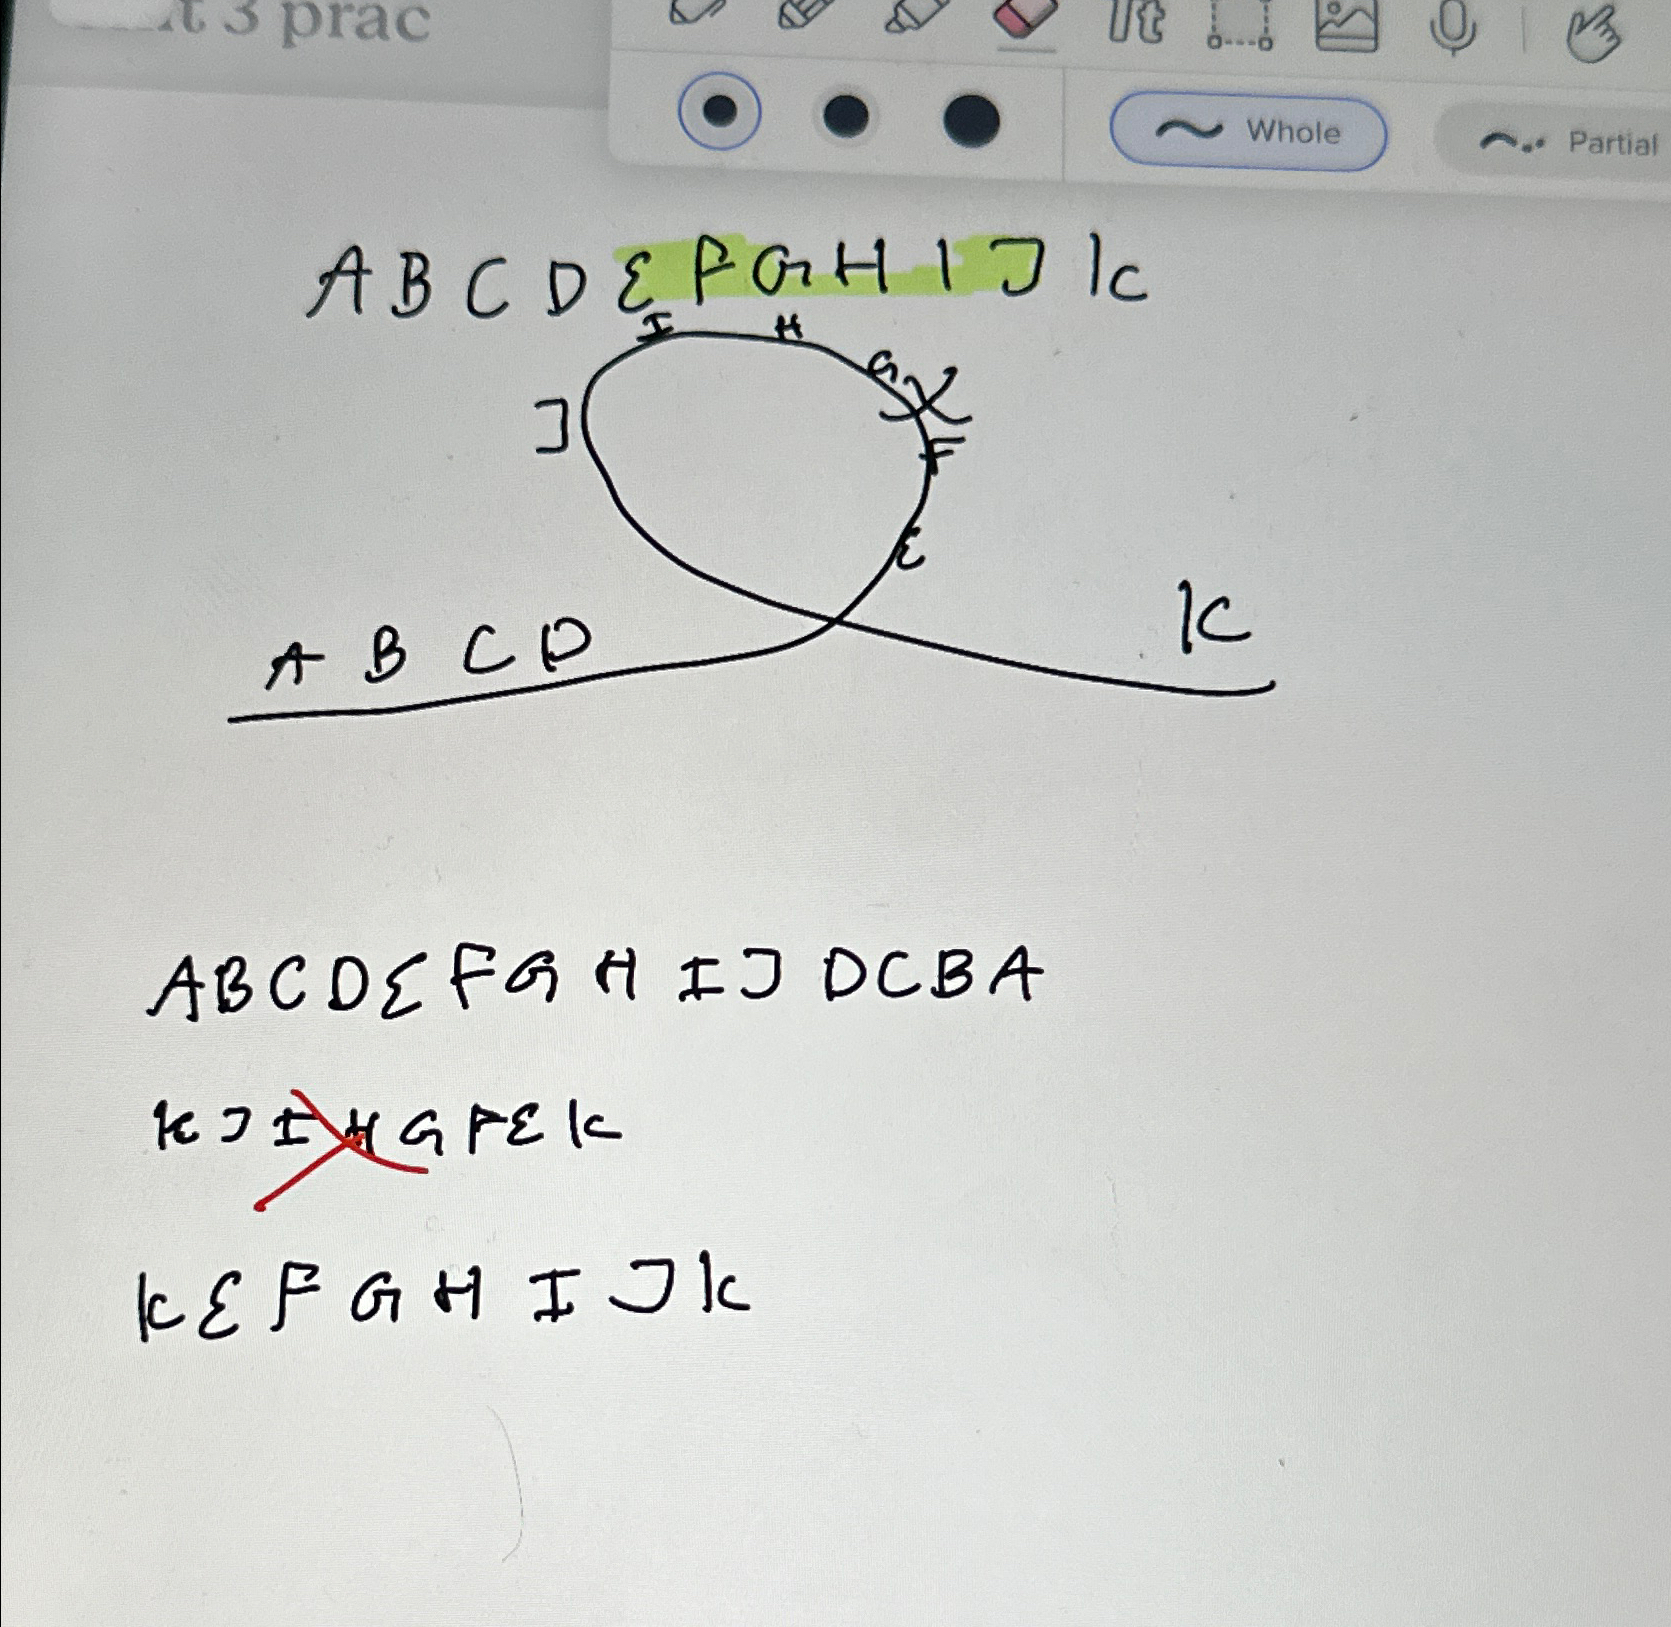 t 3 prac
Tt
Whole Partial
A B C D E F G H I J K
I H
G
J
F
E
K
A B C D
A B C D E F G H I J D C B A
K J I H G F E K
K E F G H I J K